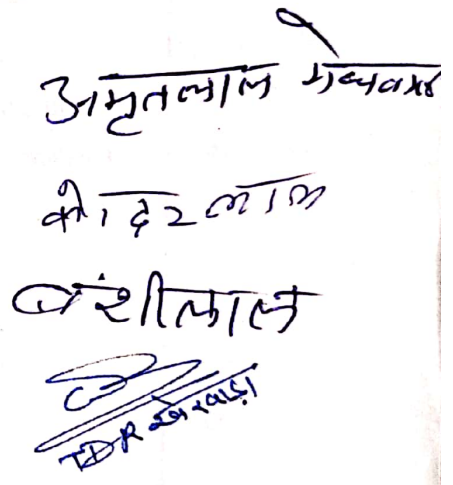 अमृतलाल मेघवाल
कोदरलाल
बंशीलाल
TDR खेरवाड़ा